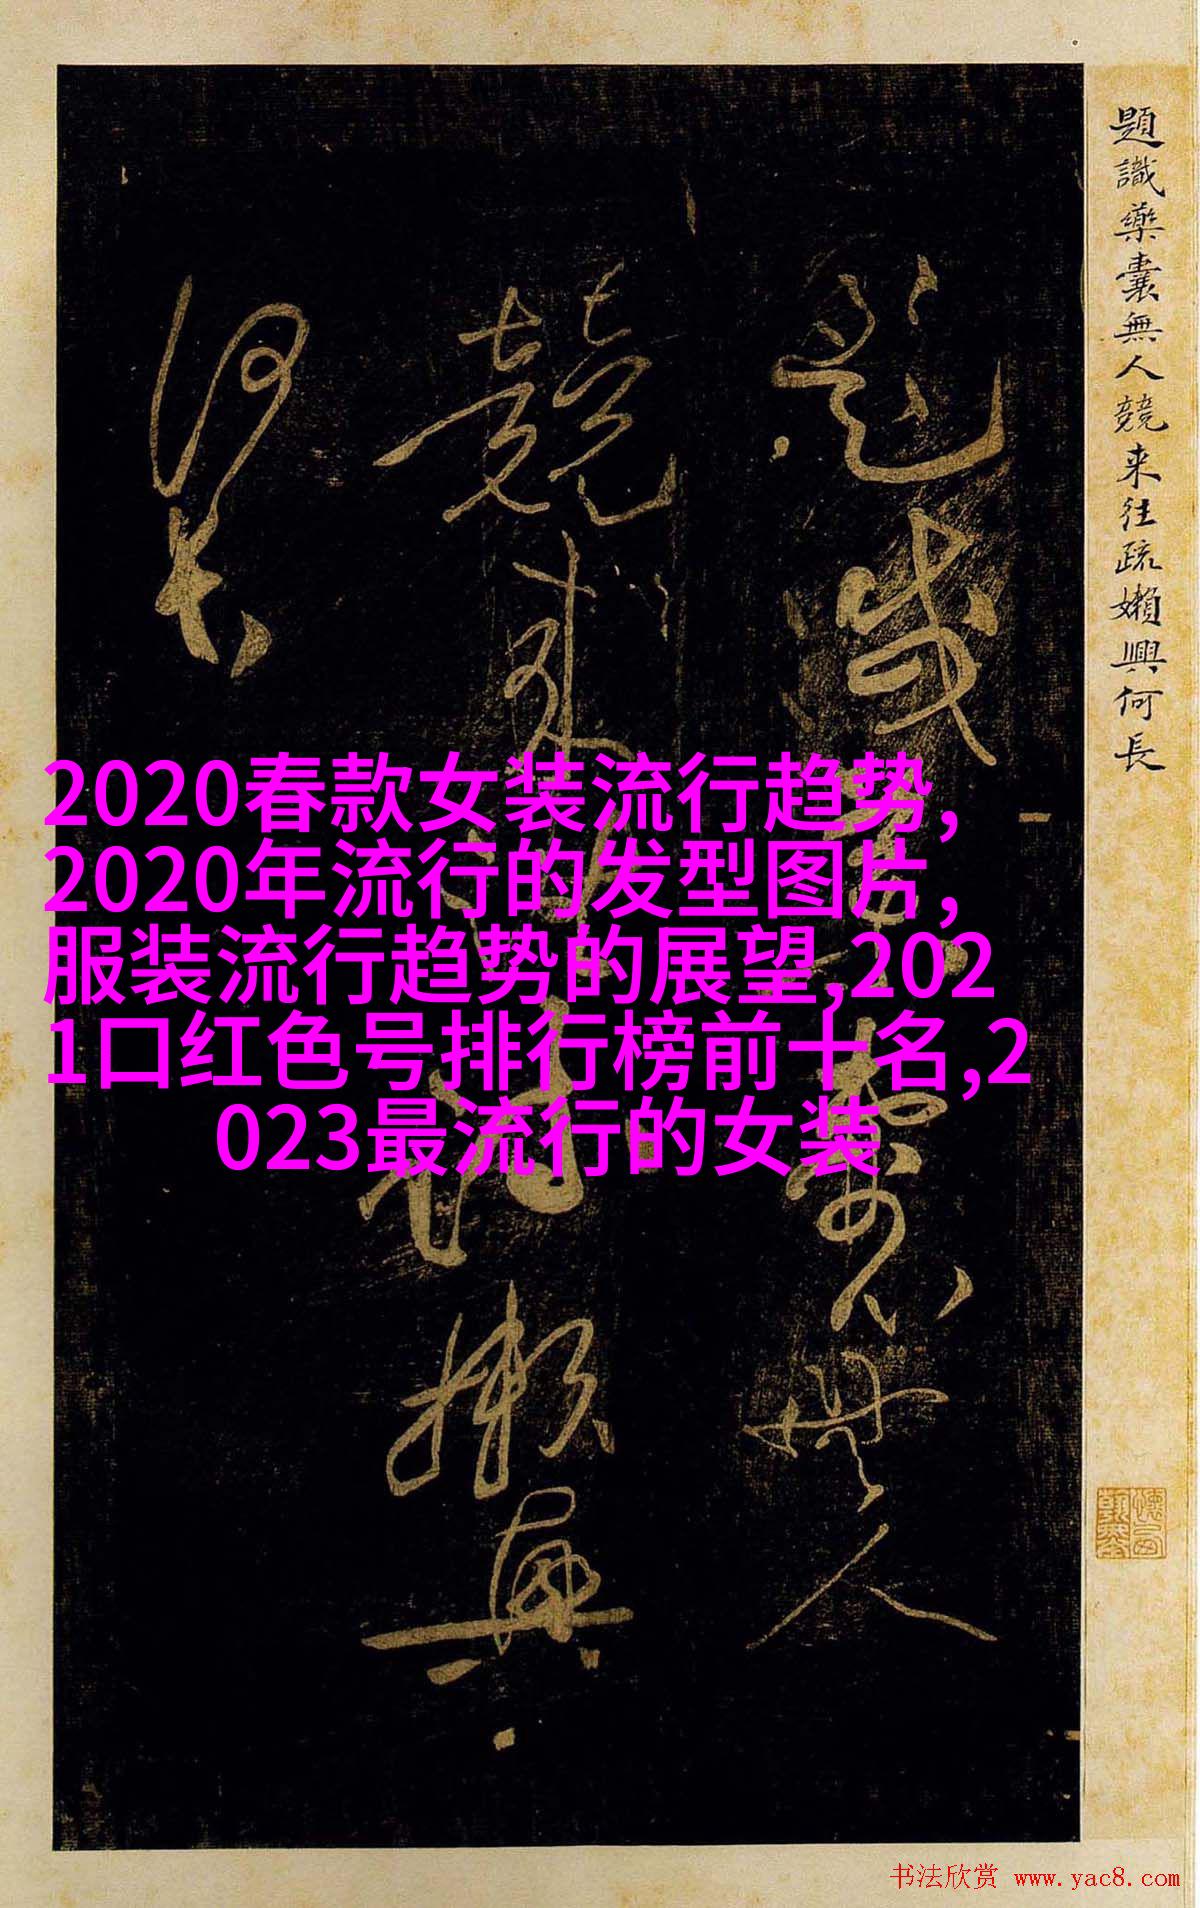 題識藥囊無人競来往疏嬾興何長
題識藥囊無人
競来往疏嬾興
何長
2020春款女装流行趋势,
2020年流行的发型图片,
服装流行趋势的展望,202
1口红色号排行榜前十名,2
023最流行的女装
书法欣赏 www.yac8.com